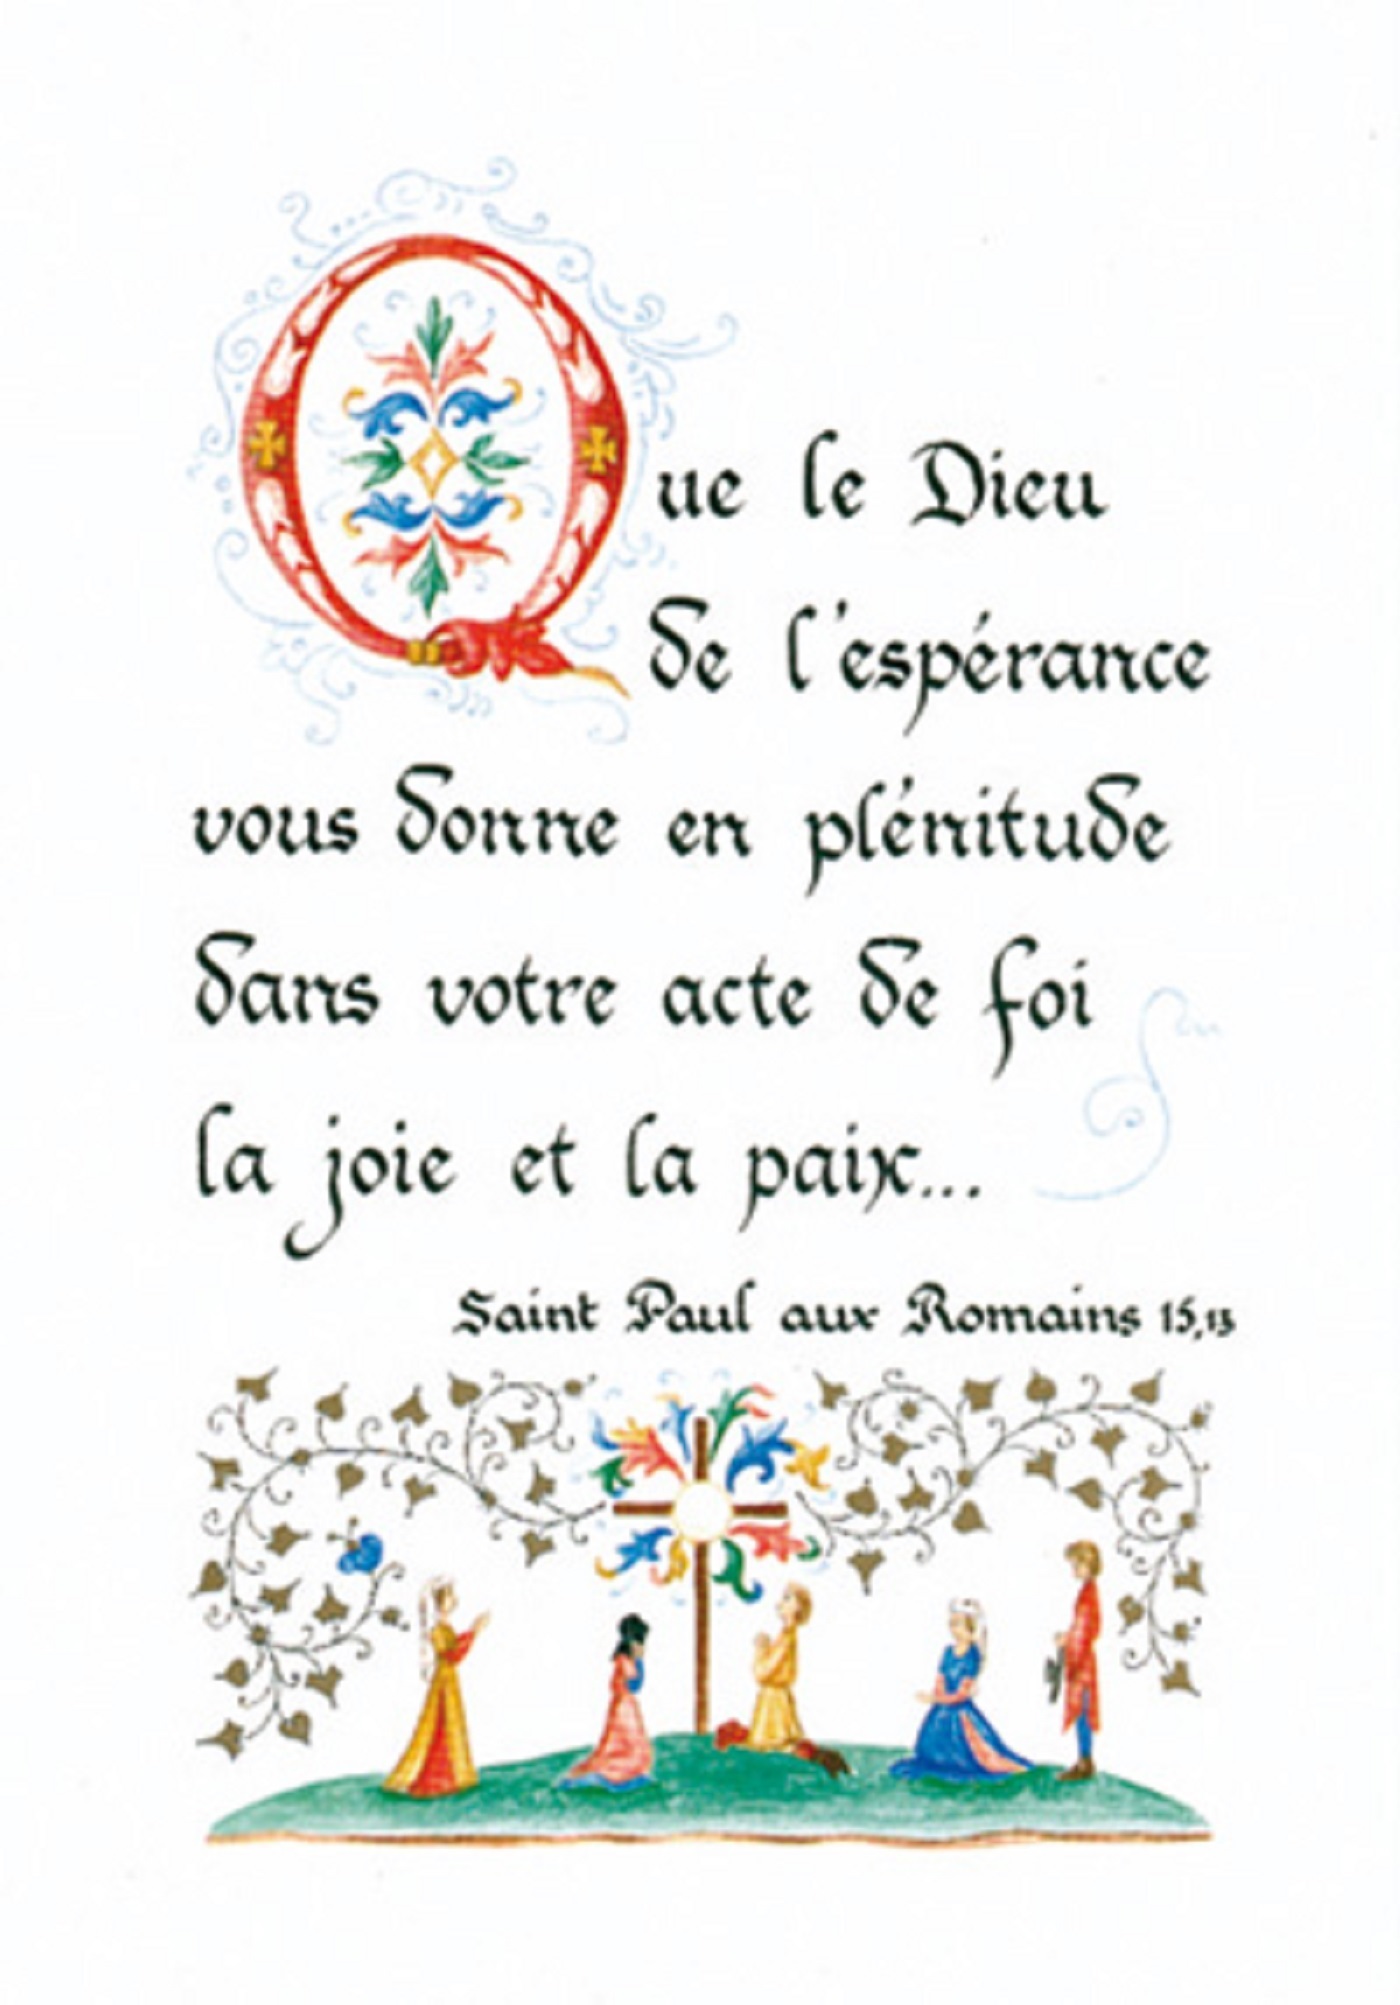 Que le Dieu
de l'espérance
vous donne en plénitude
dans votre acte de foi
la joie et la paix...
Saint Paul aux Romains 15,13